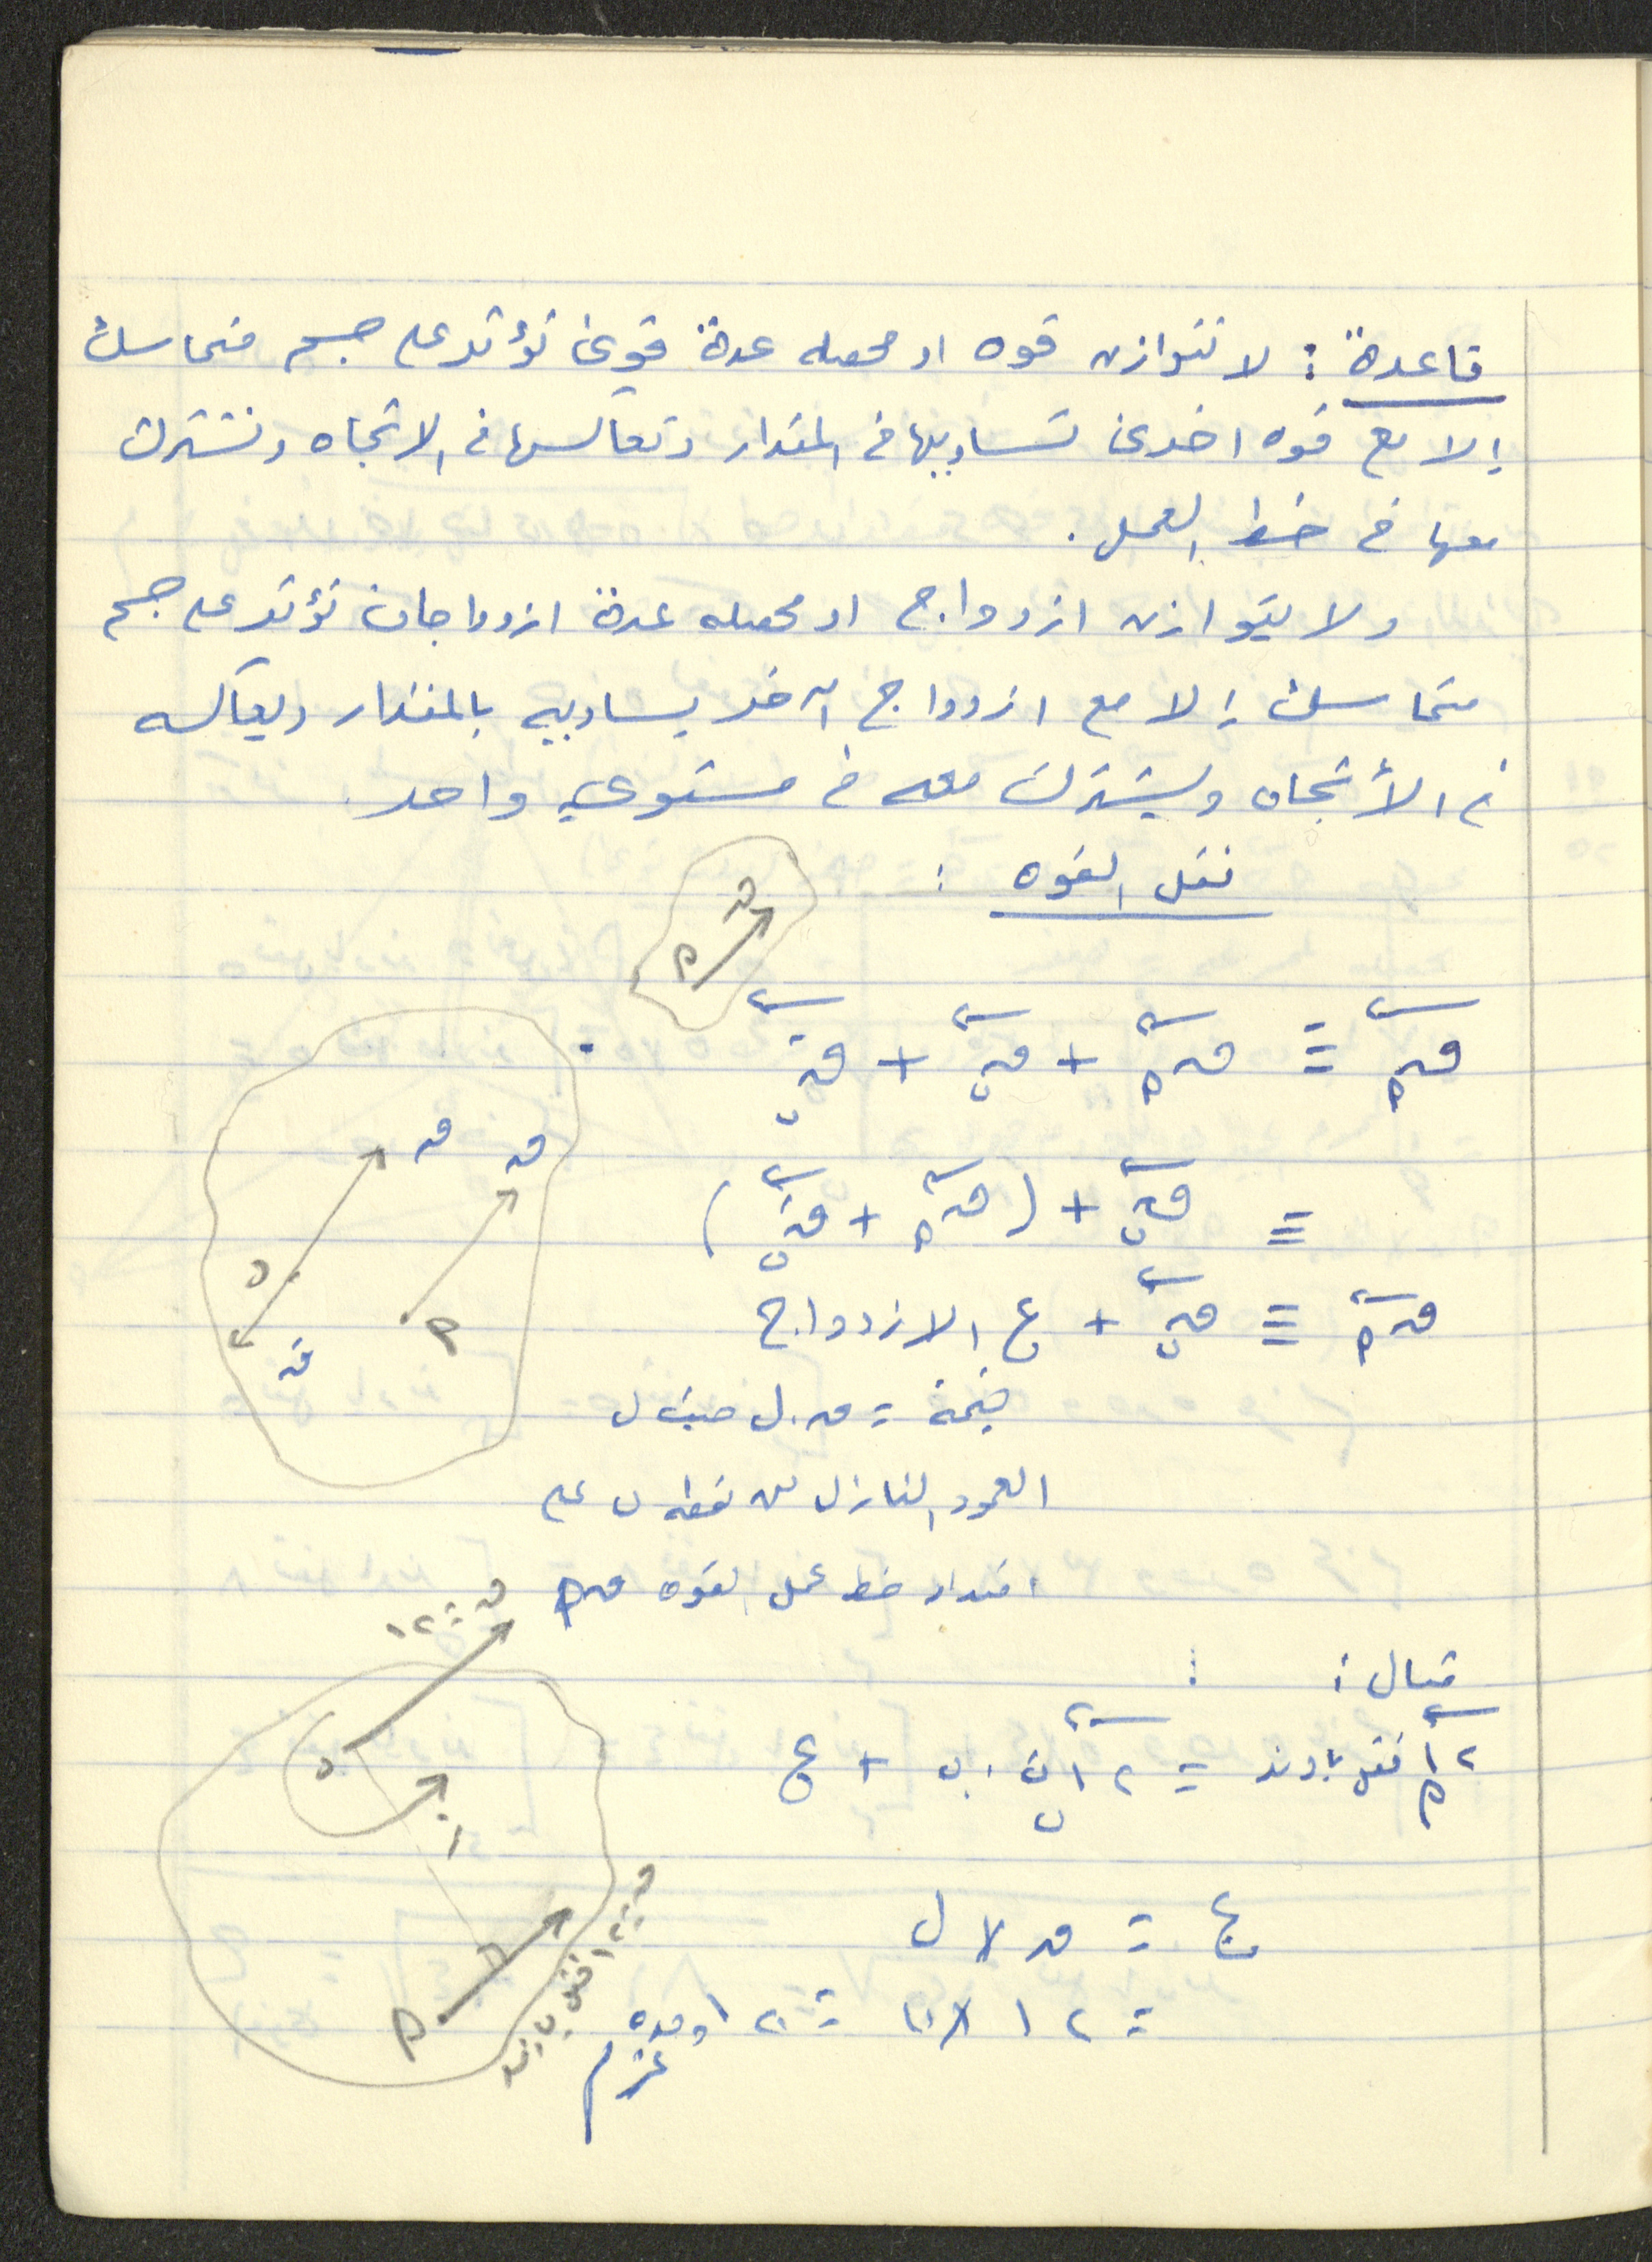 قاعدة : لا تتوازن قوه او محصله عدة قوى تؤثر على جسم متماسك
إلا مع قوه اخرى تساويها في المقدار وتعاكسها في الاتجاه وتشترك
معها في خط العمل .
ولا يتوازن ازدواج او محصله عدة ازدواجات تؤثر على جسم
متماسك إلا مع ازدواج آخر يساويه بالمقدار ويعاكسه
في الأتجاه ويشترك معه في مستوي واحد .
نقل القوه :
م ق
ق م = ق م + ق ں + ق ں
ق ق
= ق ں + ( ق م + ق ں )
ں م ق
ق م ≡ ق ں + ع الازدواج
قيمة = ق . ل حيث ل
العمود النازل من نقطه ں على
امتداد خط عمل القوه ق م
ق = ١٢
مثال :
١٢ م ثقل باوند = ١٢ ں ث . ب + ع
ع = ق × ل
ق = ١٢ ثقل باوند
= ١٢ × ١٠ = ١٢٠ وحدة
عزم